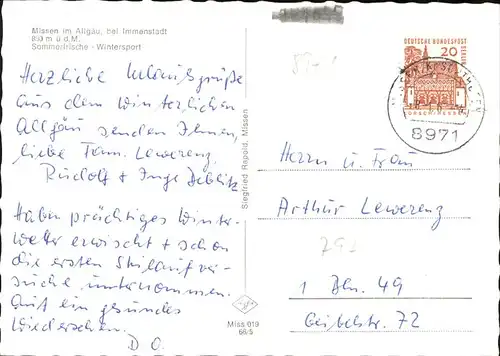 Missen im Allgäu, bei Immenstadt
850 m ü.d.M.
Sommerfrische - Wintersport
Herzliche Urlaubsgrüße
aus dem winterlichen
Allgäu senden Ihnen,
liebe Fam. Lewerenz,
Rudolf + Inge
Haben prächtiges Winter-
wetter erwischt + schon
die ersten Skilaufver-
suche unternommen.
Auf ein gesundes
Wiedersehen.
D O.
Siegfried Rapold, Missen
Miss 019
66/5
DEUTSCHE BUNDESPOST
20
8971
Herrn u. Frau
Arthur Lewerenz
1 Bln. 49
Geibelstr. 72